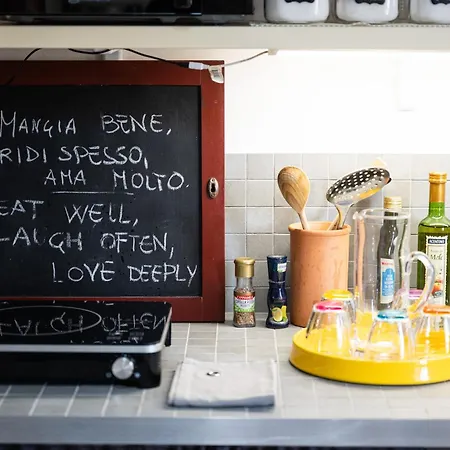 MANGIA BENE,
RIDI SPESSO,
AMA MOLTO.
EAT WELL,
LAUGH OFTEN,
LOVE DEEPLY